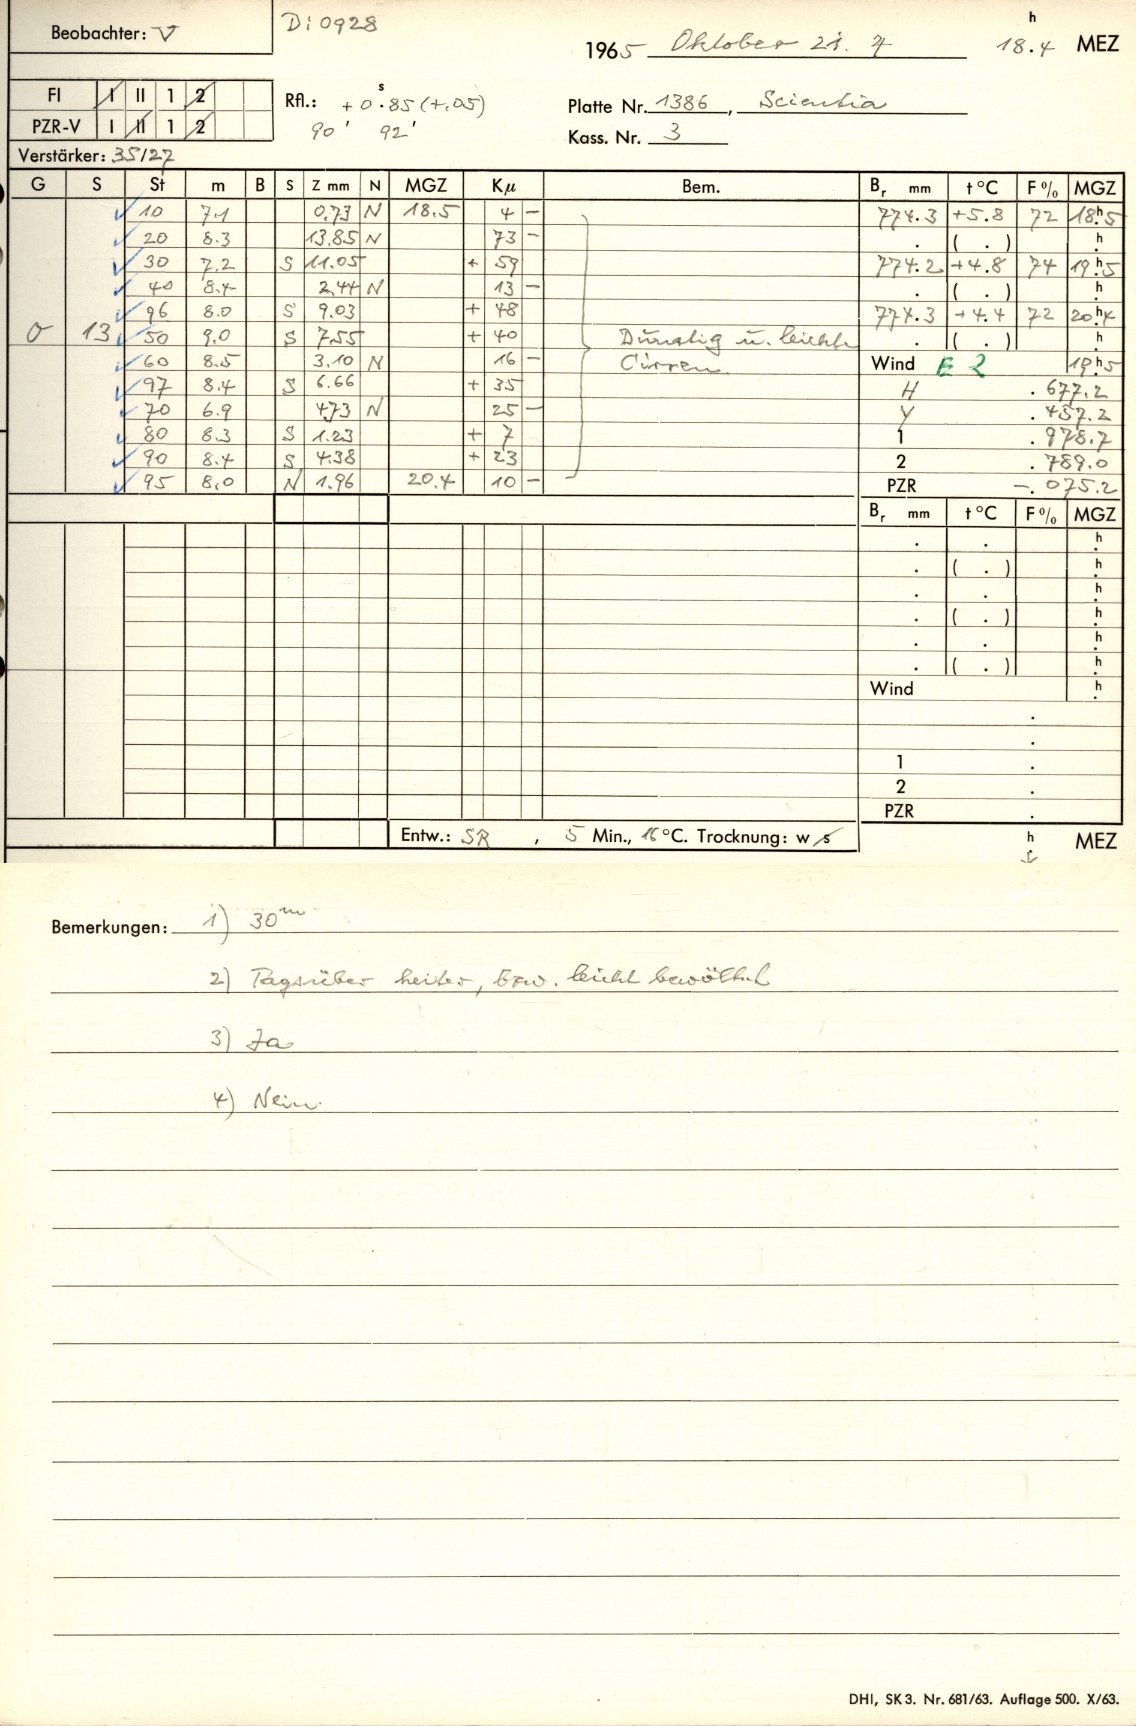 Beobachter: V
Di 0928
1965 Oktober 21. 7 18.4 h MEZ
FI I II 1 2
Rfl.: + 0 s .85 (+.05)
Platte Nr. 1386, Scientia
PZR-V I II 1 2
90' 92'
Kass. Nr. 3
Verstärker: 35/27
G S St m B S Z mm N MGZ Kμ Bem. Br mm t °C F % MGZ
10 7.1 0.73 N 18.5 4 – 774.3 +5.8 72 18h.5
20 8.3 13.85 N 73 – . ( . ) h
30 7.2 S 11.05 + 59 774.2 +4.8 74 19h.5
40 8.4 2.44 N 13 – . ( . ) h
96 8.0 S 9.03 + 48 774.3 +4.4 72 20h.4
0 13 50 9.0 S 7.55 + 40 Dunstig u. leichte . ( . ) h
60 8.5 3.10 N 16 – Cirren. Wind E 2 19h.5
97 8.4 S 6.66 + 35 H .677.2
70 6.9 4.73 N 25 – Y .457.2
80 8.3 S 1.23 + 7 1 .978.7
90 8.4 S 4.38 + 23 2 .789.0
95 8.0 N 1.96 20.4 10 – PZR –.075.2
Br mm t °C F % MGZ
. . h
. ( . ) h
. . h
. ( . ) h
. . h
. ( . ) h
Wind h
.
.
1 .
2 .
PZR .
Entw.: SR , 5 Min., 16 °C. Trocknung: w s h MEZ
Bemerkungen: 1) 30m
2) Tagsüber heiter, bzw. leicht bewölkt
3) Ja
4) Nein.
DHI, SK 3. Nr. 681/63. Auflage 500. X/63.